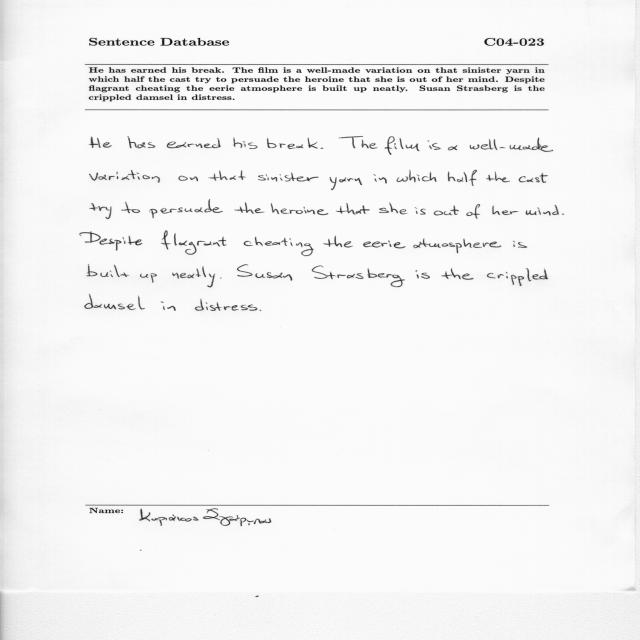 Sentence Database C04-023
He has earned his break. The film is a well-made variation on that sinister yarn in
which half the cast try to persuade the heroine that she is out of her mind. Despite
flagrant cheating the eerie atmosphere is built up neatly. Susan Strasberg is the
crippled damsel in distress.
He has earned his break. The film is a well-made
variation on that sinister yarn in which half the cast
try to persuade the heroine that she is out of her mind.
Despite flagrant cheating the eerie atmosphere is
built up neatly. Susan Strasberg is the crippled
damsel in distress.
Name: